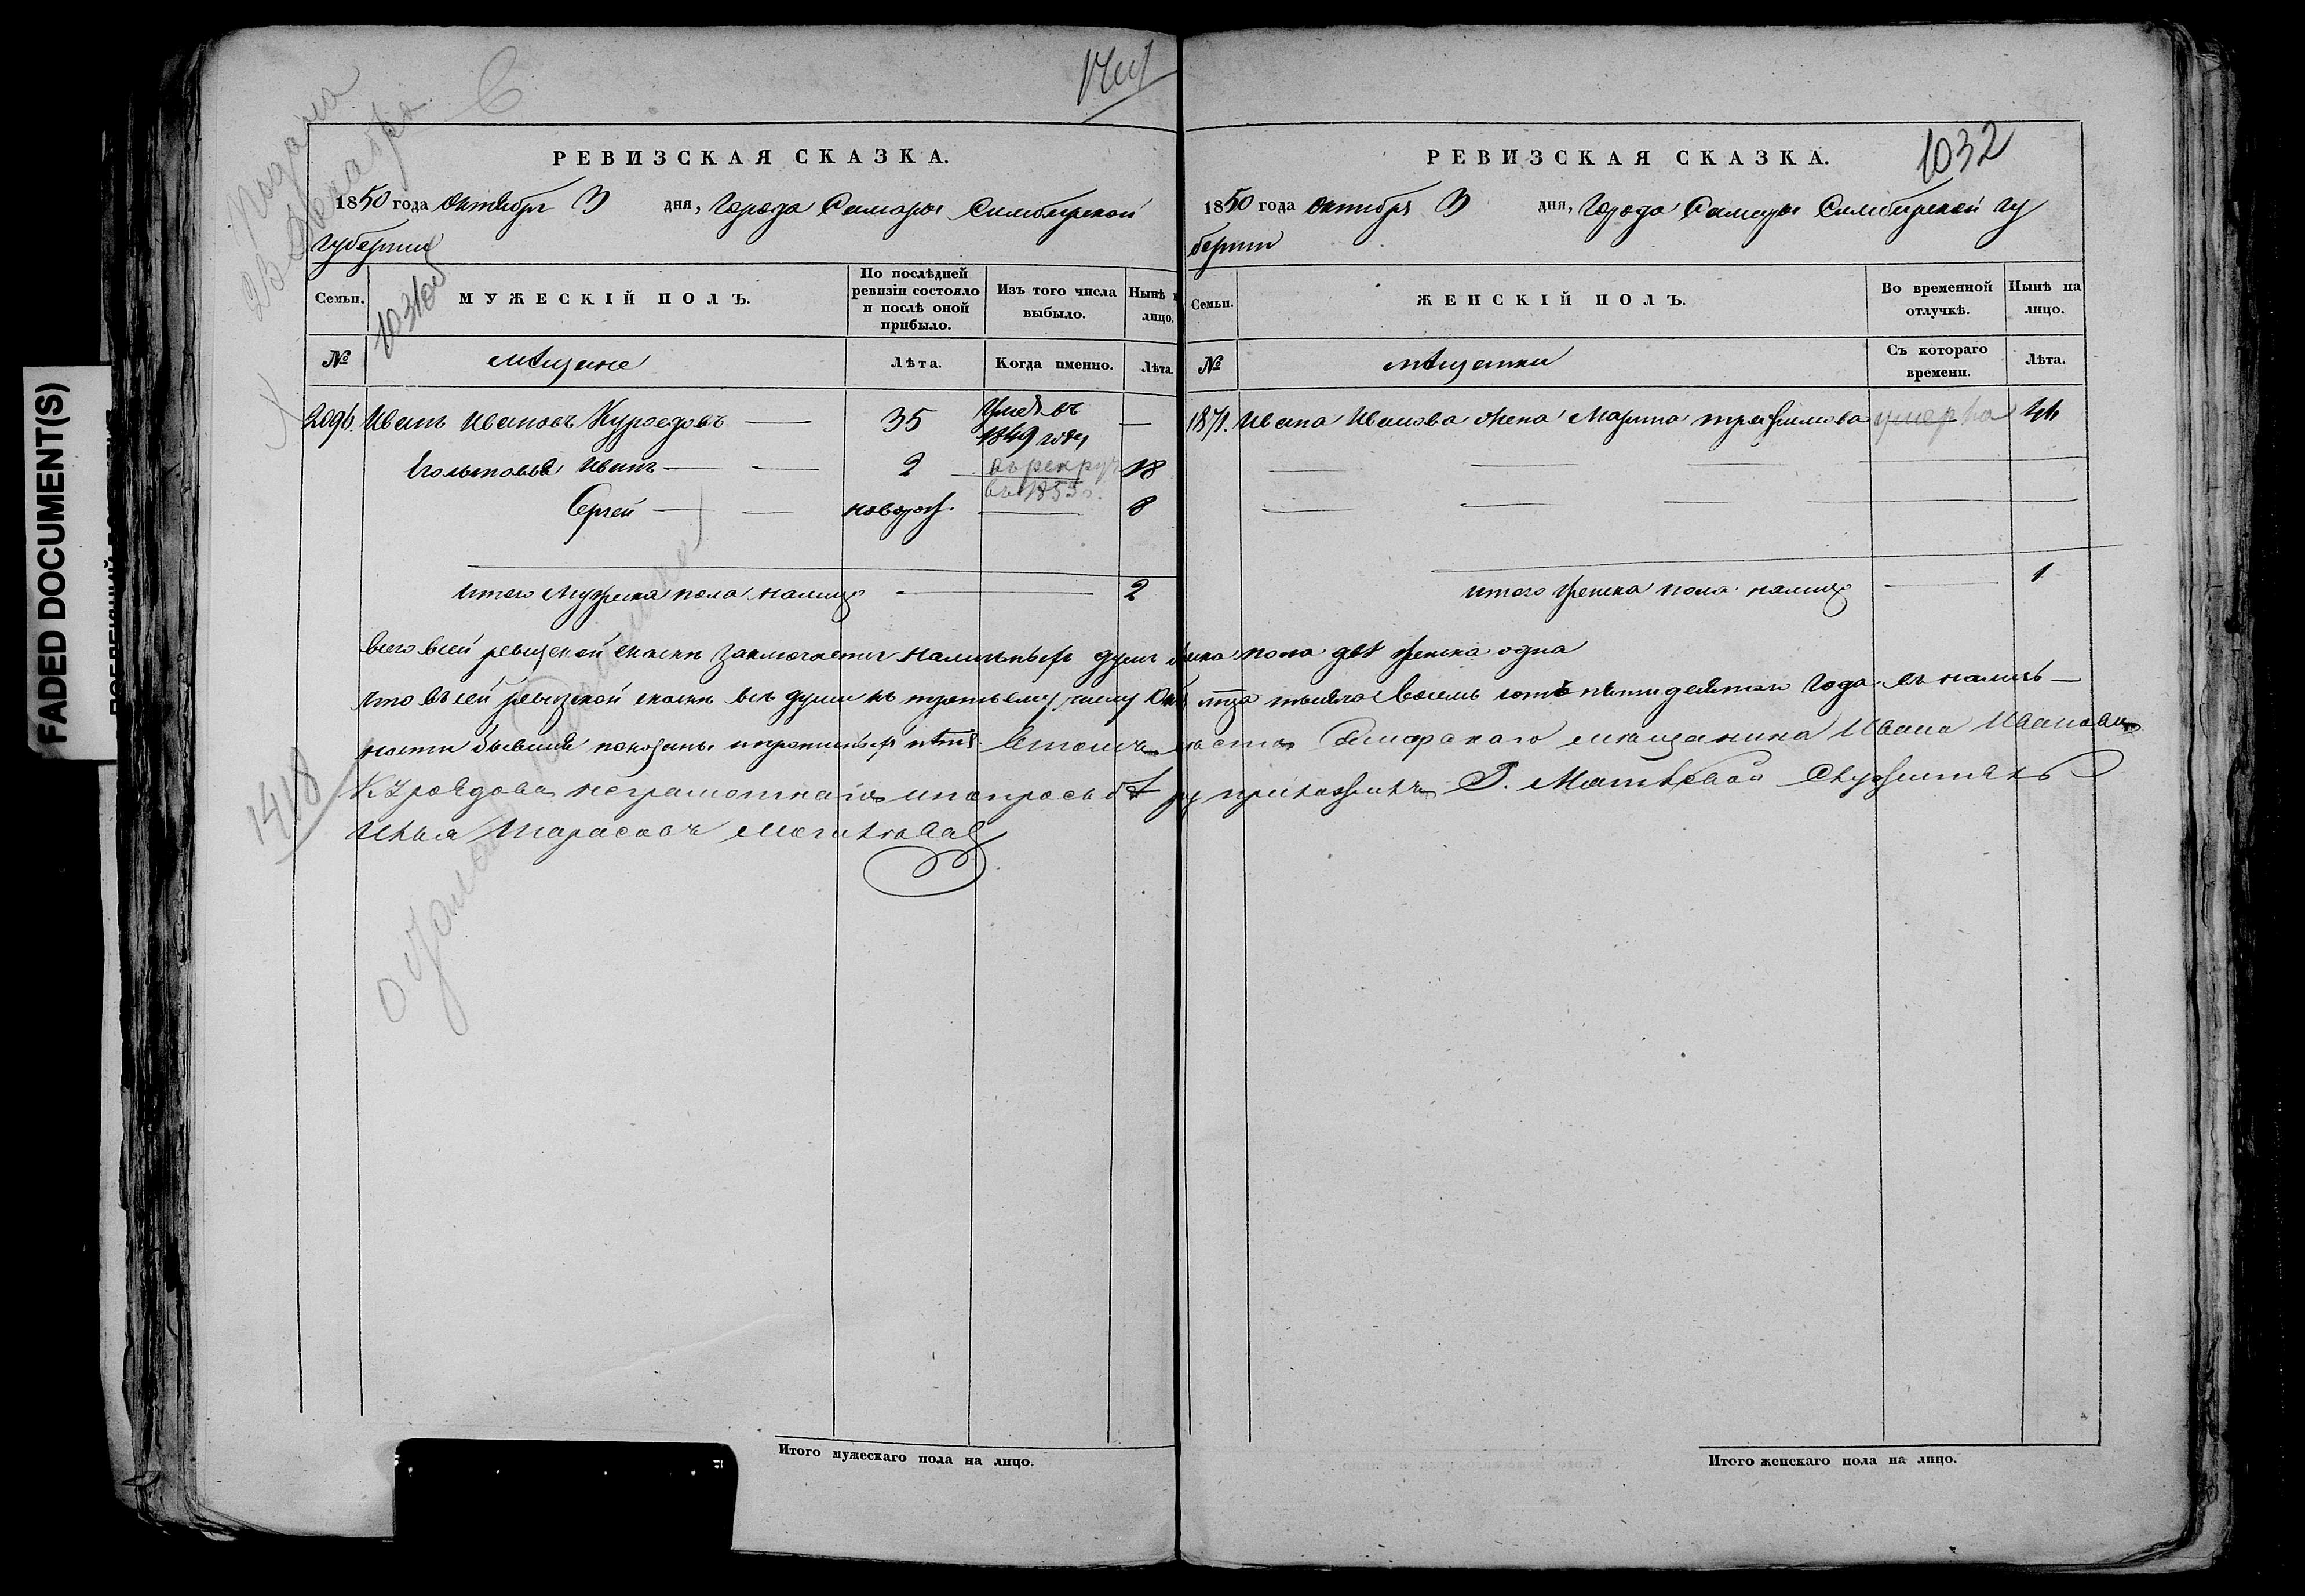 FADED DOCUMENT(S)
Подана
23 Декабря
РЕВИЗСКАЯ СКАЗКА.
1850 года Октября 3 дня, Города Самары Симбирской
губернии
Семьи.
МУЖЕСКІЙ ПОЛЪ.
По послѣдней ревизіи состояло и послѣ оной прибыло.
Изъ того числа выбыло.
Нынѣ на лицо.
№
мѣщане
Лѣта.
Когда именно.
Лѣта.
Иванъ Ивановъ Куроедовъ — 35 Умеръ въ 1849 году —
Иванъ — 2 въ рекрут. въ 1855 г. 18
Сергей — новорож. — 8
итого мужеска пола налицо — 2
1418
Итого мужескаго пола на лицо.
1032
РЕВИЗСКАЯ СКАЗКА.
1850 года Октября 3 дня, Города Самары Симбирской гу
бернии
Семьи.
ЖЕНСКІЙ ПОЛЪ.
Во временной отлучкѣ.
Нынѣ на лицо.
№
мѣщанки
Съ котораго времени.
Лѣта.
1871. Ивана Иванова жена Марина трафимова умерла 44
итого женска пола налицо — 1
всего всей ревизской сказки заключается наличныхъ душъ пола две женска одна
что въ сей ревизской сказки все души къ третьему числу тысяча восемь сотъ пятидесятаго года въ налич—
ности бывшие показаны и пропиныхъ нетъ Самарскаго мещанина Ивана Иванова
Куроедова неграмотнаго и по просьбе руку приложилъ
Илья Тарасовъ
Итого женскаго пола на лицо.